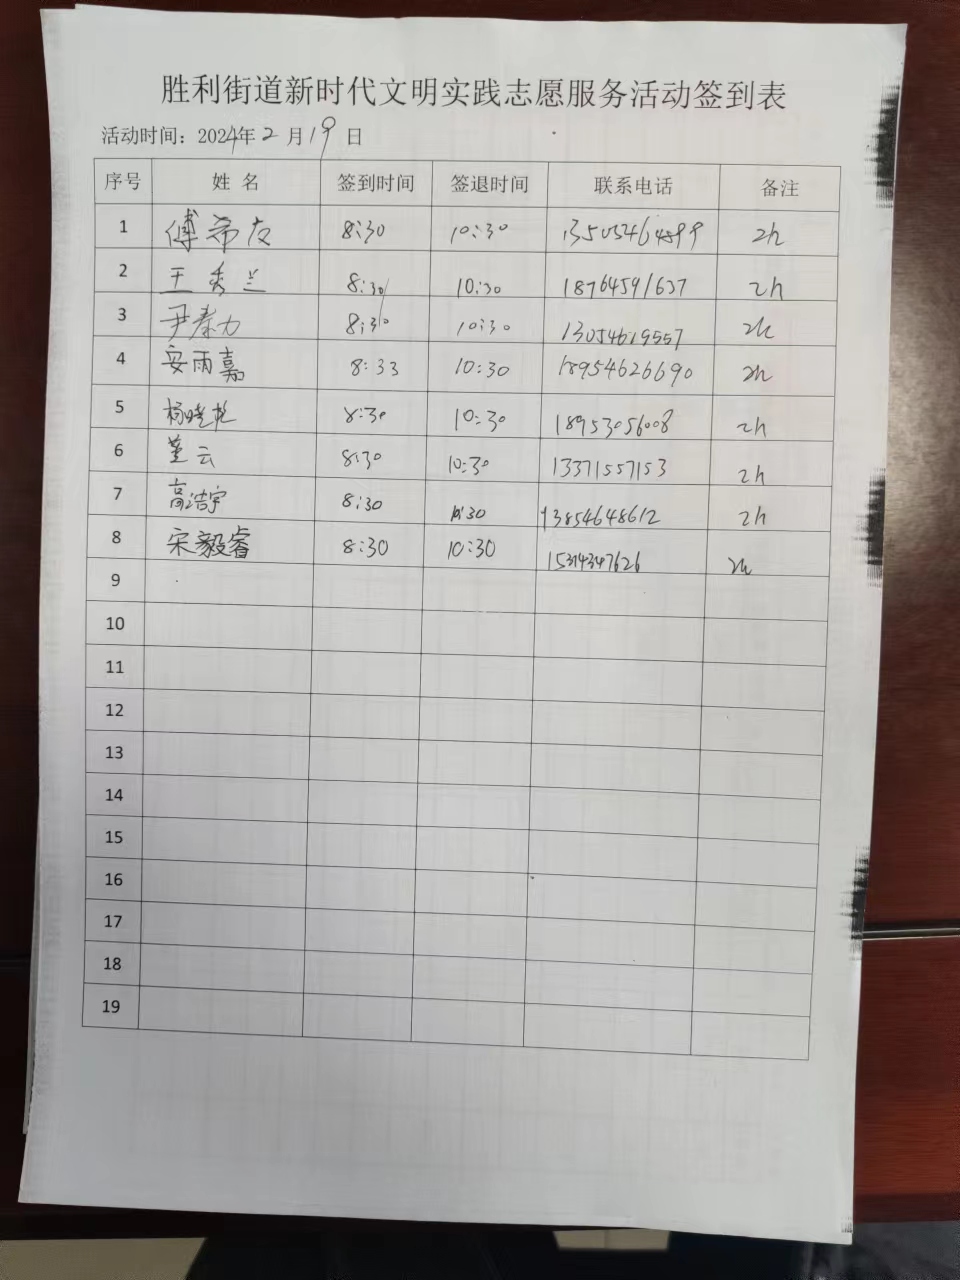 胜利街道新时代文明实践志愿服务活动签到表
活动时间：2024年2月19日
序号 姓 名 签到时间 签退时间 联系电话 备注
1 傅希友 8:30 10:30 13505464899 2h
2 王秀兰 8:30 10:30 18764591637 2h
3 尹泰力 8:30 10:30 13054619557 2h
4 安雨嘉 8:33 10:30 18954626690 2h
5 杨晓艳 8:30 10:30 18953056008 2h
6 董云 8:30 10:30 13371557153 2h
7 高浩宇 8:30 10:30 13854648612 2h
8 宋毅睿 8:30 10:30 15314347626 2h
9
10
11
12
13
14
15
16
17
18
19